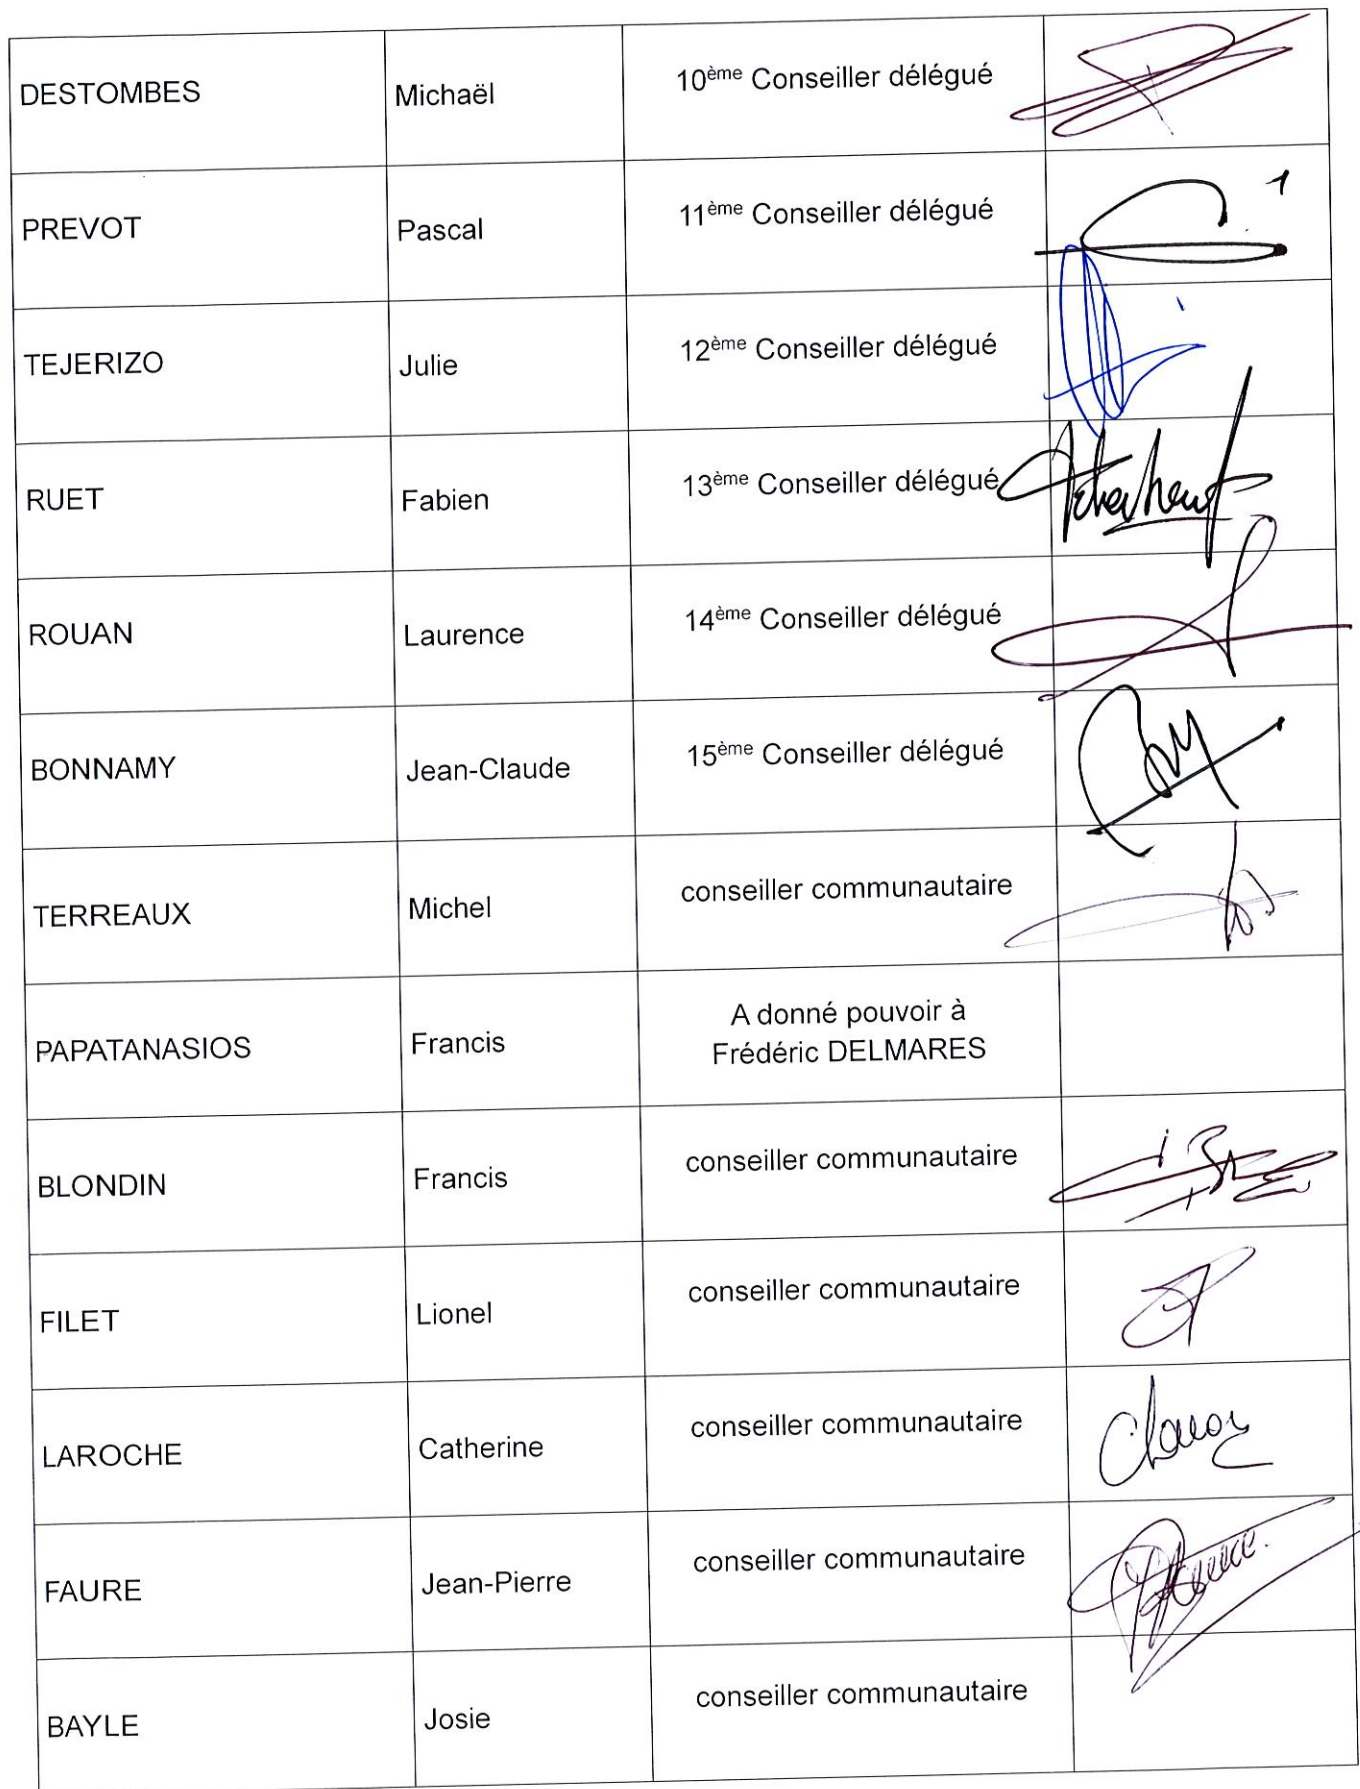 DESTOMBES Michaël 10ème Conseiller délégué
PREVOT Pascal 11ème Conseiller délégué
TEJERIZO Julie 12ème Conseiller délégué
RUET Fabien 13ème Conseiller délégué
ROUAN Laurence 14ème Conseiller délégué
BONNAMY Jean-Claude 15ème Conseiller délégué
TERREAUX Michel conseiller communautaire
PAPATANASIOS Francis A donné pouvoir à
Frédéric DELMARES
BLONDIN Francis conseiller communautaire
FILET Lionel conseiller communautaire
LAROCHE Catherine conseiller communautaire
FAURE Jean-Pierre conseiller communautaire
BAYLE Josie conseiller communautaire